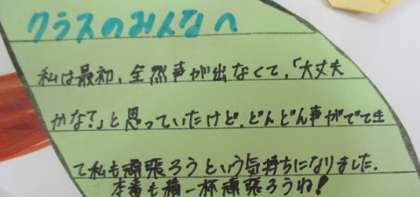 クラスのみんなへ
私は最初、全然声が出なくて、「大丈夫
かな?」と思っていたけど、どんどん声がでてき
て私も頑張ろうという気持ちになりました。
本番も精一杯頑張ろうね!